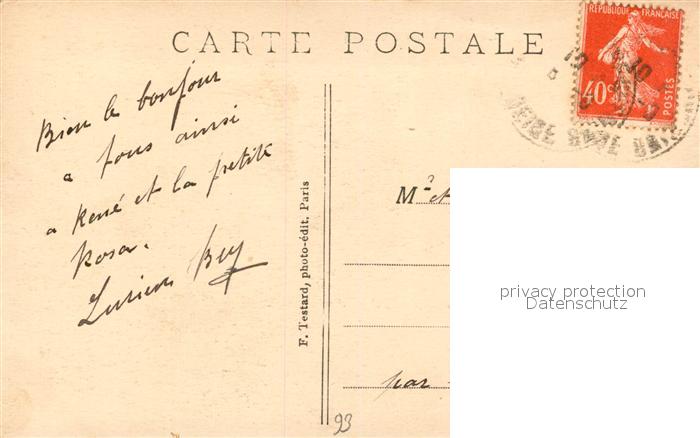 CARTE POSTALE
RÉPUBLIQUE FRANÇAISE
40 c
POSTES
Bien le bonjour
a tous ainsi
a René et la petite
Rosa.
Lucien
F. Testard, photo-édit. Paris
M et
par
93
privacy protection
Datenschutz